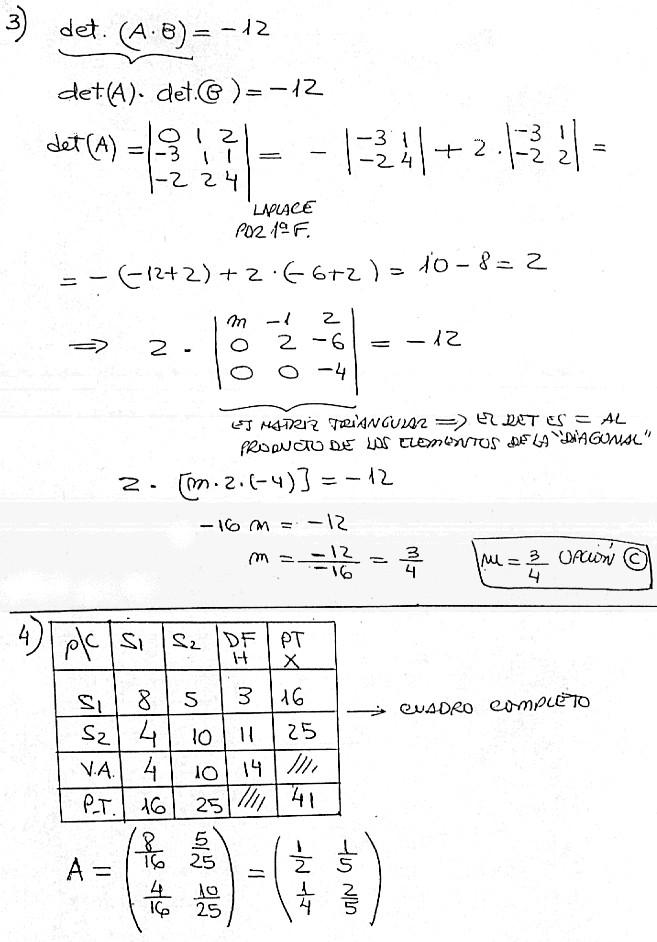 3) det. (A·B) = -12
det(A)· det.(B) = -12
det(A) = |0 1 2| = - |-3 1| + 2·|-3 1| =
|-3 1 1| |-2 4| |-2 2|
|-2 2 4|
LAPLACE
POR 1ª F.
= -(-12+2) + 2·(-6+2) = 10 - 8 = 2
⟹ 2 · |m -1 2| = -12
|0 2 -6|
|0 0 -4|
ES MATRIZ TRIANGULAR ⟹ EL DET ES = AL
PRODUCTO DE LOS ELEMENTOS DE LA "DIAGONAL"
2 · [m·2·(-4)] = -12
-16 m = -12
m = -12/-16 = 3/4
m = 3/4 OPCIÓN C
4) P\C S1 S2 DF H PT X
S1 8 5 3 16 → CUADRO COMPLETO
S2 4 10 11 25
V.A. 4 10 14 ////
P.T. 16 25 //// 41
A = (8/16 5/25) = (1/2 1/5)
(4/16 10/25) (1/4 2/5)